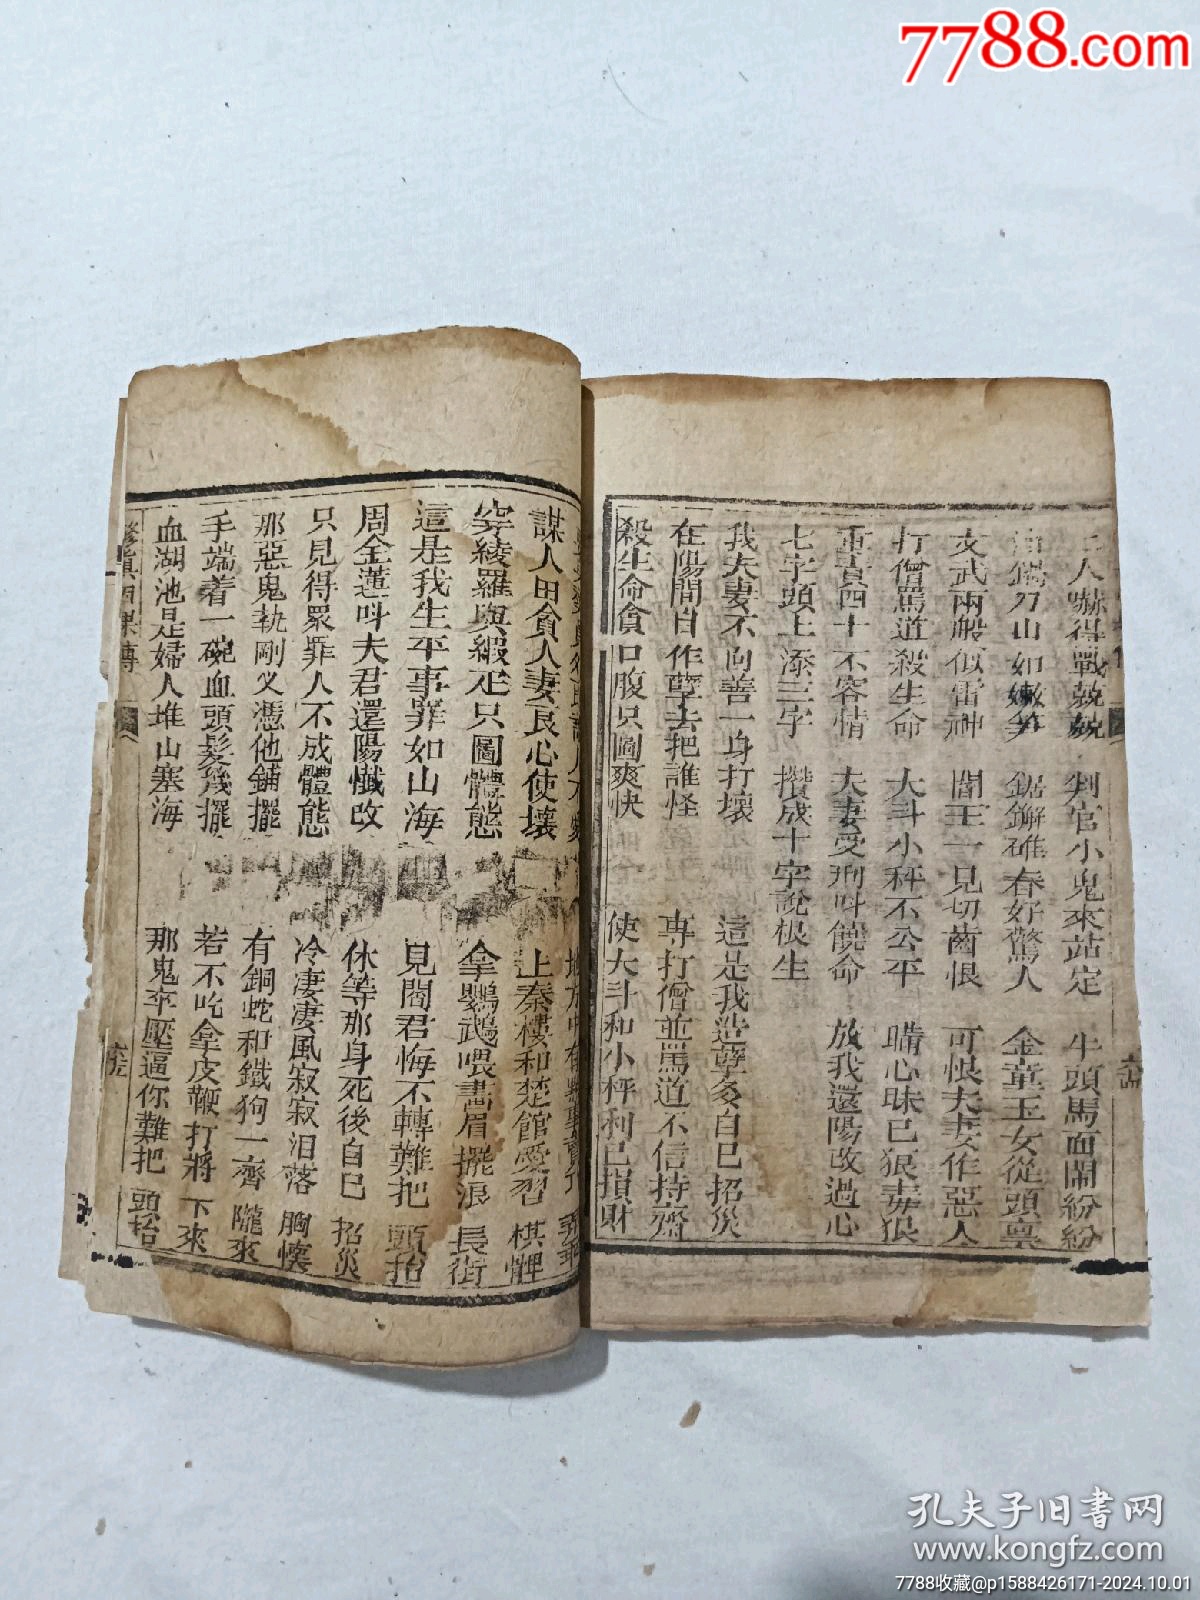 7788.com
二人嚇得戰兢兢 判官小鬼來站定 牛頭馬面鬧紛紛
油鍋刀山如嫩笋 鋸觧碓舂好驚人 金童玉女從頭禀
文武兩般似雷神 閻王一見切齒恨 可恨夫妻作惡人
打僧罵道殺生命 大斗小秤不公平 瞞心昧已狠毒狠
重責四十不容情 夫妻受刑呌饒命 放我還陽改過心
七字頭上添三字 攢成十字說根生
我夫妻不向善一身打壞 這是我造孽多自已招災
在陽間自作孽去把誰怪 專打僧並罵道不信持齋
殺生命貪口腹只圖爽快 使大斗和小秤利已損財
謀人田貪人妻良心使壞 上秦樓和楚館愛習棋牌
穿綾羅與緞疋只圖體態 拿鸚鵡喂畫眉擺浪長街
這是我生平事罪如山海 見閻君悔不轉難把頭抬
周金蓮呌夫君還陽懺改 休等那身死後自已招災
只見得眾罪人不成體態 冷凄凄風寂寂泪落胸懷
那惡鬼執剛义憑他鋪擺 有銅蛇和鐵狗一齊隴來
手端着一碗血頭髮幾擺 若不吃拿皮鞭打將下來
血湖池是婦人堆山塞海 那鬼卒壓逼你難把頭抬
孔夫子旧书网
www.kongfz.com
7788收藏@p1588426171-2024.10.01